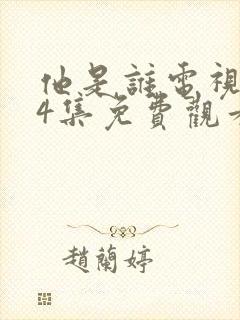 他是誰電視
4集免費觀看
趙蘭婷